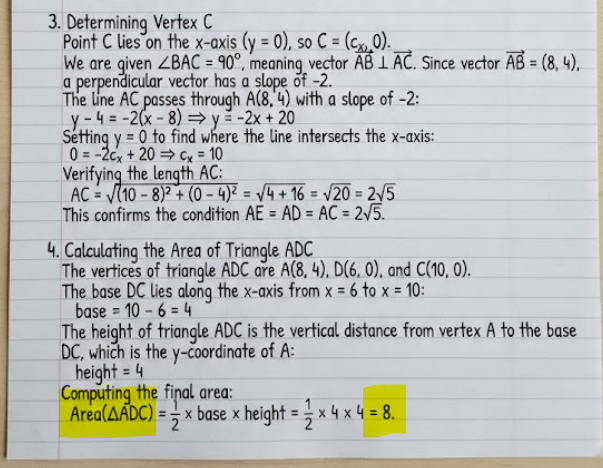 3. Determining Vertex C
Point C lies on the x-axis (y = 0), so C = (cₓ, 0).
We are given ∠BAC = 90°, meaning vector A⃗B⃗ ⊥ A⃗C⃗. Since vector A⃗B⃗ = (8, 4),
a perpendicular vector has a slope of -2.
The line AC passes through A(8, 4) with a slope of -2:
y - 4 = -2(x - 8) ⇒ y = -2x + 20
Setting y = 0 to find where the line intersects the x-axis:
0 = -2cₓ + 20 ⇒ cₓ = 10
Verifying the length AC:
AC = √(10 - 8)² + (0 - 4)² = √4 + 16 = √20 = 2√5
This confirms the condition AE = AD = AC = 2√5.
4. Calculating the Area of Triangle ADC
The vertices of triangle ADC are A(8, 4), D(6, 0), and C(10, 0).
The base DC lies along the x-axis from x = 6 to x = 10:
base = 10 - 6 = 4
The height of triangle ADC is the vertical distance from vertex A to the base
DC, which is the y-coordinate of A:
height = 4
Computing the final area:
Area(△ADC) = 1/2 × base × height = 1/2 × 4 × 4 = 8.